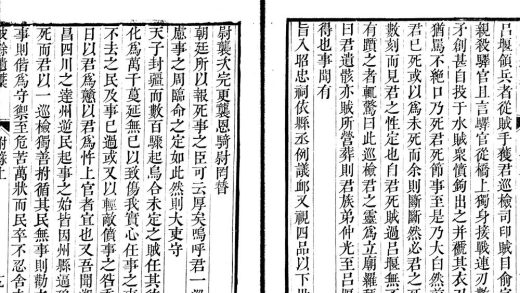 呂堰領兵者從賊手獲君巡檢司印賊目俞
親殺驛官且言驛官從橋上獨身接戰連刃
矛創甚自投于水賊衆憤鉤出之并攦其衣
猶罵不絶口乃死君死節事至是乃大白然
君已死或以爲未死而余則斷斷然必君之
數刻而見君之性定也自君死賊過呂堰無
有躓之者輒驚曰此巡檢君之靈爲立廟羅
曰君遺骸亦賊所營葬則君族弟仲光至呂
得也事聞有
旨入昭忠祠依縣丞例議卹又視四品以下
尉襲次完更襲恩騎尉罔替
朝廷所以報死事之臣可云厚矣嗚呼君一
應事之周臨命之定如此然則大吏守
天子封疆而數百驟起烏合未定之賊任其
化爲萬千蔓延無已以致傷我實心任事之
不去之民及事已過或又以輕敵僨事之咎
日以君爲戇以君爲性上官者宜也又吾聞
昌四川之達州逆民起事之始皆因州縣逼
死而君以一巡檢獨善拊循其民無事則勸
事則偕爲守禦至危苦萬狀而民卒不忍舍
附錄上